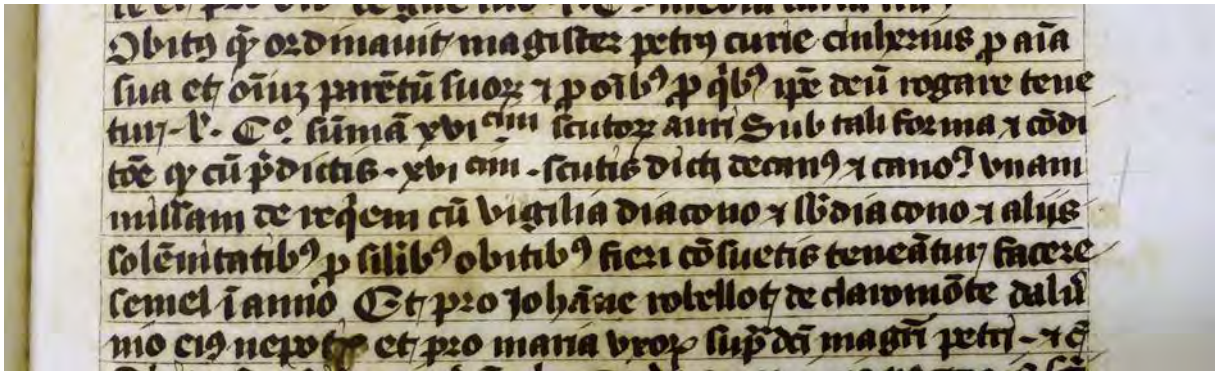 Obitꝰ qͥ ordinauit magister petrꝰ curie cinherius ꝑ aīa
sua et oīuꝫ parētū suoꝝ ⁊ ꝑ oībꝰ ꝑ qͥbꝰ ip̄e deū rogare tene
tur Cᵒ sūmā xvi scutoꝝ auri Sub tali forma ⁊ cōdi
tōe ꝙ cū p̄dictis xvi scutis dicti decanꝰ ⁊ canoꝰ vnam
missam de reqͥem cū vigilia diacono ⁊ sb̄diacono ⁊ aliis
solēnitatibꝰ ꝑ silibꝰ obitibꝰ fieri cōsuetis teneātur facere
semel ī anno Et pro Johāne robellot de claromōte
nio eiꝰ nepote et pro maria vxoꝝ sup̄dc̄i magr̄i petri ⁊